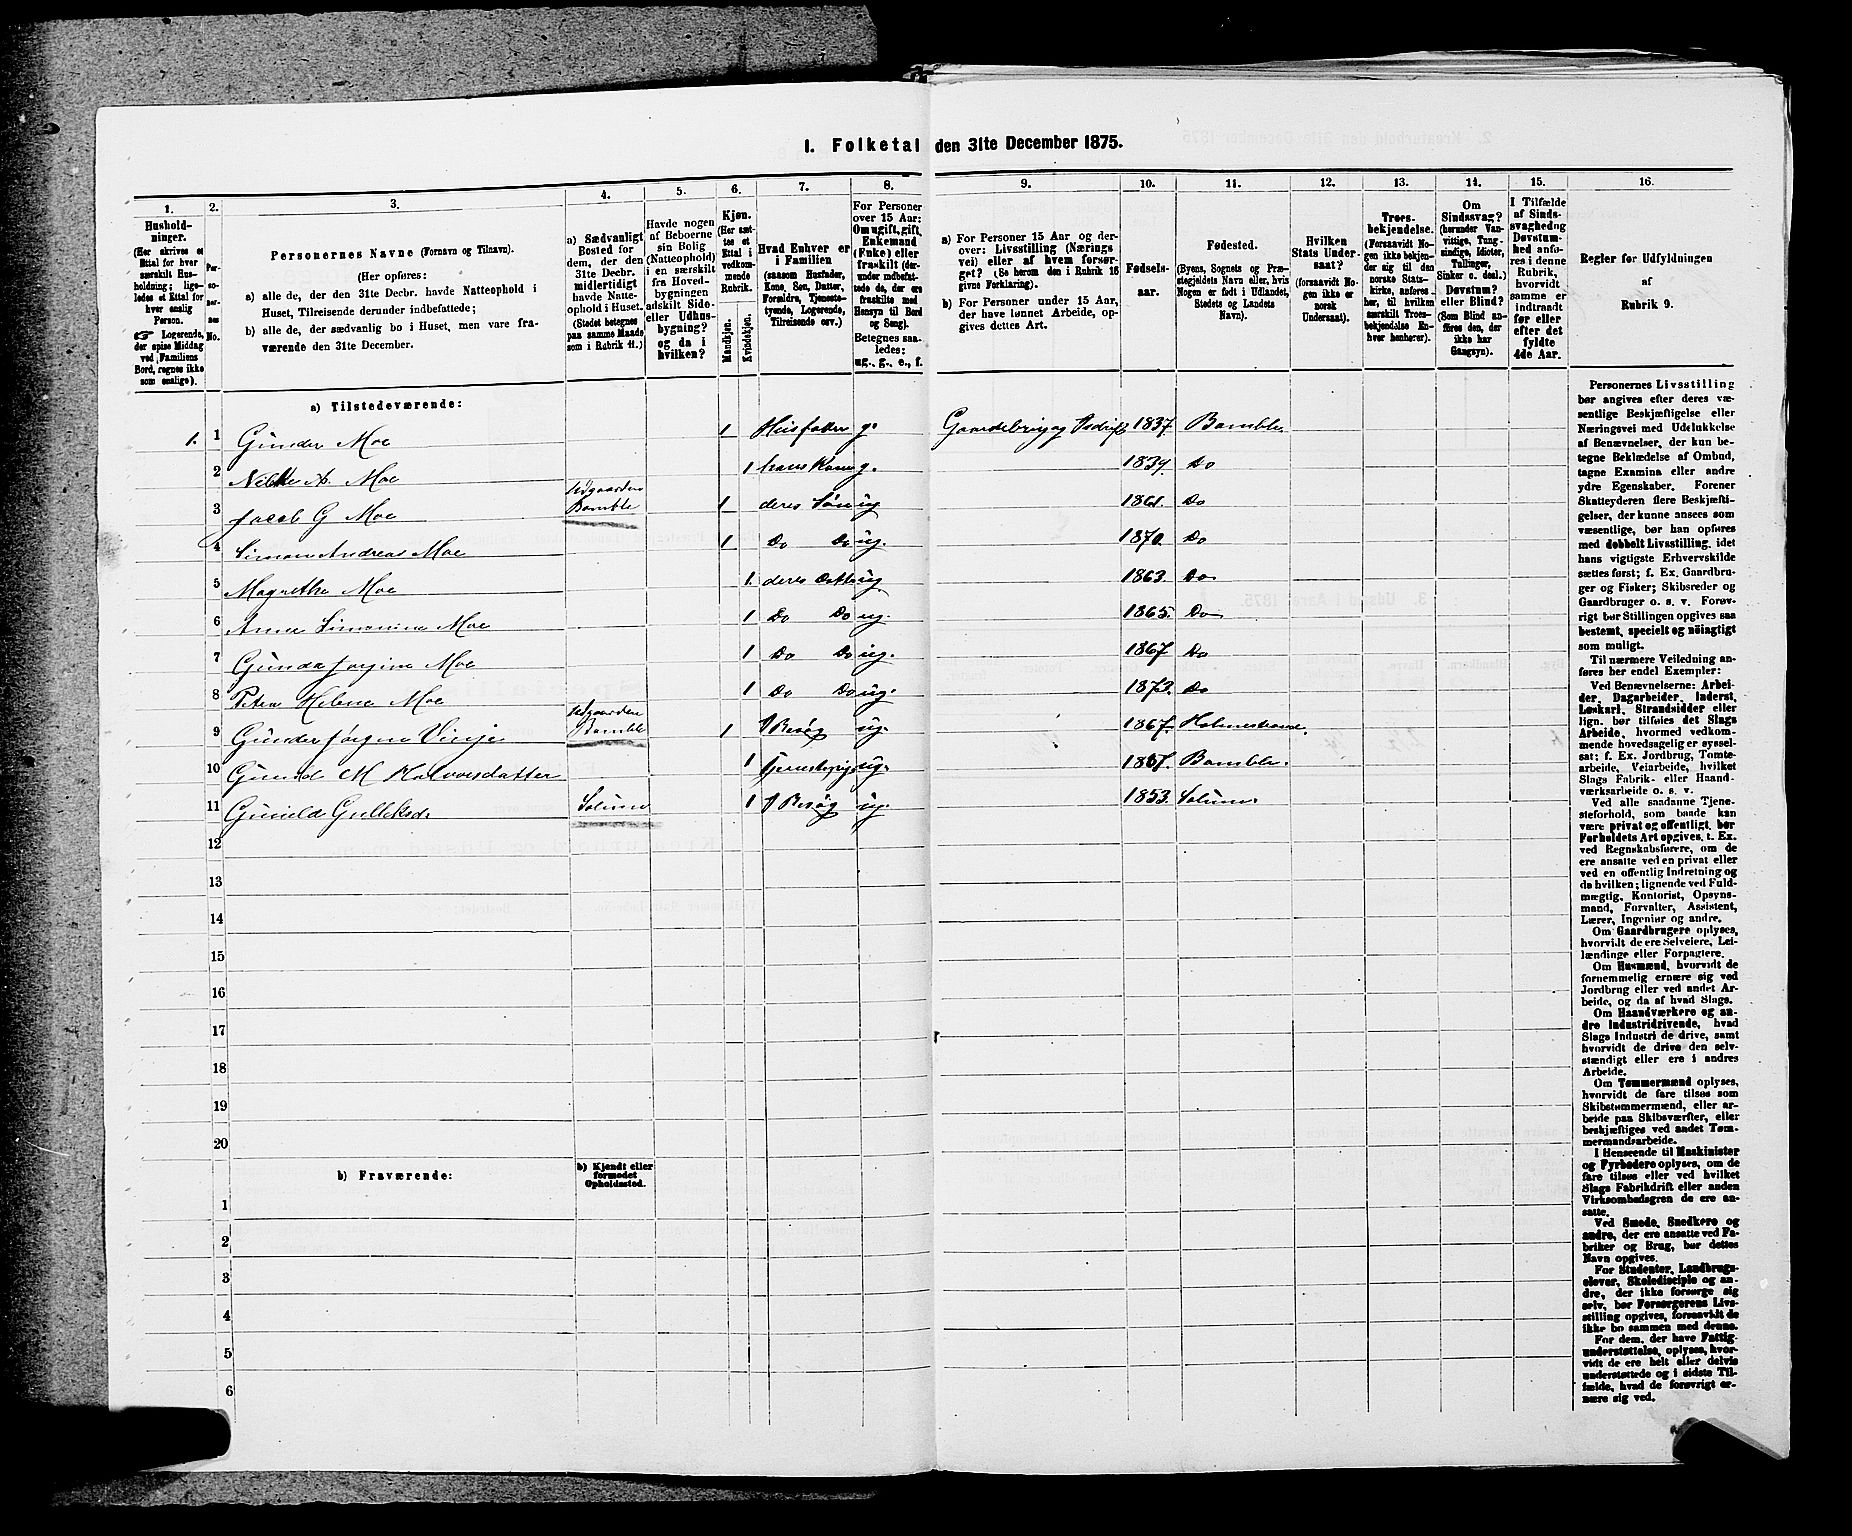 I. Folketal den 31te December 1875.
1. 2. 3. 4. 5. 6. 7. 8. 9. 10. 11. 12. 13. 14. 15. 16.
Hushold-
ninger.
(Her skrives et
Ettal for hver
særskilt Hus-
holdning; lige-
ledes et Ettal for
hver enslig
Person.
☞ Logerende,
der spise Middag
ved Familiens
Bord, regnes ikke
som enslige).
Per-
so-
ner-
nes
No.
Personernes Navne (Fornavn og Tilnavn).
(Her opføres:
a) alle de, der den 31te Decbr. havde Natteophold i
Huset, Tilreisende derunder indbefattede;
b) alle de, der sædvanlig bo i Huset, men vare fra-
værende den 31te December.
a) Sædvanligt
Bosted for
dem, der den
31te Decbr.
midlertidigt
havde Natte-
ophold i Huset.
(Stedet betegnes
paa samme Maade
som i Rubrik 11.)
Havde nogen
af Beboerne
sin Bolig
(Natteophold)
i en særskilt
fra Hoved-
bygningen
adskilt Side-
eller Udhus-
bygning?
og da i
hvilken?
Kjøn.
(Her sæt-
tes et
Ettal i
vedkom-
mende
Rubrik.
Mandkjøn.
Kvindekjøn.
Hvad Enhver er
i Familien
(saasom Husfader,
Kone, Søn, Datter,
Forældre, Tjeneste-
tyende, Logerende,
Tilreisende osv.)
For Personer
over 15 Aar:
Om ugift, gift,
Enkemand
(Enke) eller
fraskilt (der-
under indbefat-
tede de, der ere
fraskilte med
Hensyn til Bord
og Seng).
Betegnes saa-
ledes:
ug., g., e., f.
a) For Personer 15 Aar og der-
over: Livsstilling (Nærings
vei) eller af hvem forsør-
get? (Se herom den i Rubrik 16
givne Forklaring).
b) For Personer under 15 Aar,
der have lønnet Arbeide, op-
gives dettes Art.
Fødsels-
aar.
Fødested.
(Byens, Sognets og Præ-
stegjeldets Navn eller, hvis
Nogen er født i Udlandet,
Stedets og Landets
Navn).
Hvilken
Stats Under-
saat?
(forsaavidt No-
gen ikke er
norsk
Undersaat).
Troes-
bekjendelse.
(Forsaavidt No-
gen ikke bekjen-
der sig til den
norske Stats-
kirke, anføres
her, til hvilken
særskilt Troes-
bekjendelse En-
hver henhører).
Om
Sindssvag?
(herunder Van-
vittige, Tung-
sindige, Idioter,
Tullinger,
Sinker o. desl.)
Døvstum?
eller Blind?
(Som Blind an-
føres den, der
ikke har
Gangsyn).
I Tilfælde
af Sinds-
svaghed og
Døvstum-
hed anfø-
res i denne
Rubrik,
hvorvidt
samme er
indtraadt
før eller
efter det
fyldte
4de Aar.
Regler for Udfyldningen
af
Rubrik 9.
a) Tilstedeværende:
1. 1 Gunder Moe 1 Husfader g. Gaardebrug 1837. Bamble.
2 A. Moe 1 hans Kone g. Do
3 Jacob G Moe Bamble 1 deres Søn ug 1861. Do
4 Simon Andreas Moe 1 Do Do ug. 1870. Do
5 Magrethe Moe 1. deres ug. 1863. Do
6 Anne Simonine Moe 1 Do Do ug. 1865. Do
7 Gunda Jorgine Moe 1 Do Do ug. 1867 Do
8 Helene Moe 1 Do Do ug. 1873. Do
9 Gunder Jørgen Vinje Bamble 1 Besøg ug. 1867. Holmestrand.
10 M Halvorsdatter 1 ug. Bamble.
11 Gunild Gulleksd. Solum 1 Besøg ug. 1853. Solum.
12
13
14
15
16
17
18
19
20
b) Fraværende:
b) Kjendt eller
formodet
Opholdssted.
1
2
3
4
5
6
Personernes Livsstilling
bør angives efter deres væ-
sentlige Beskjæftigelse eller
Næringsvei med Udelukkelse
af Benævnelser, der kun be-
tegne Beklædelse af Ombud,
tagne Examina eller andre
ydre Egenskaber. Forener
Skatteyderen flere Beskjæfti-
gelser, der kunne ansees som
væsentlige, bør han opføres
med dobbelt Livsstilling, idet
hans vigtigste Erhvervskilde
sættes først; f. Ex. Gaardbru-
ger og Fisker; Skibsreder og
Gaardbruger o. s. v. Forøv-
rigt bør Stillingen opgives saa
bestemt, specielt og nøiagtigt
som muligt.
Til nærmere Veiledning an-
føres her endel Exempler:
Ved Benævnelserne: Arbei-
der, Dagarbeider, Inderst,
Løskarl, Strandsidder eller
lign. bør tilføies det Slags
Arbeide, hvormed vedkom-
mende hovedsagelig er syssel-
sat; f. Ex. Jordbrug, Tomte-
arbeide, Veiarbeide, hvilket
Slags Fabrik- eller Haand-
værksarbeide o. s. v.
Ved alle saadanne Tjene-
steforhold, som baade kan
være privat og offentligt, bør
Forholdets Art opgives, t. Ex.
ved Regnskabsførere, om de
ere ansatte ved en privat eller
ved en offentlig Indretning og
da hvilken; lignende ved Fuld-
mægtig, Kontorist, Opsyns-
mand, Forvalter, Assistent,
Lærer, Ingeniør og andre.
Om Gaardbrugere oplyses,
hvorvidt de ere Selveiere, Lei-
lændinge eller Forpagtere.
Om Husmænd, hvorvidt de
fornemmelig ernære sig ved
Jordbrug eller ved andet Ar-
beide, og da af hvad Slags.
Om Haandværkere og an-
dre Industridrivende, hvad
Slags Industri de drive, samt
hvorvidt de drive den selv-
stændigt eller ere i andres
Arbeide.
Om Tømmermænd oplyses,
hvorvidt de fare tilsøs som
Skibstømmermænd, eller ar-
beide paa Skibsværfter, eller
beskjæftiges ved andet Tøm-
mermandsarbeide.
I Henseende til Maskinister
og Fyrbødere oplyses, om de
fare tilsøs eller ved hvilket
Slags Fabrikdrift eller anden
Virksombedsgren de ere an-
satte.
Ved Smede, Snedkere og
andre, der ere ansatte ved Fa-
briker og Brug, bør dettes
Navn opgives.
For Studenter, Landbrugs-
elever, Skoledisciple og an-
dre, der ikke forsørge sig
selv, bør Forsørgerens Livs-
stilling opgives, forsaavidt de
ikke bo sammen med denne.
For dem, der have Fattig-
understøttelse, oplyses, hvor-
vidt de ere helt eller delvis
understøttede og i sidste Til-
fælde, hvad de forøvrigt er-
nære sig ved.